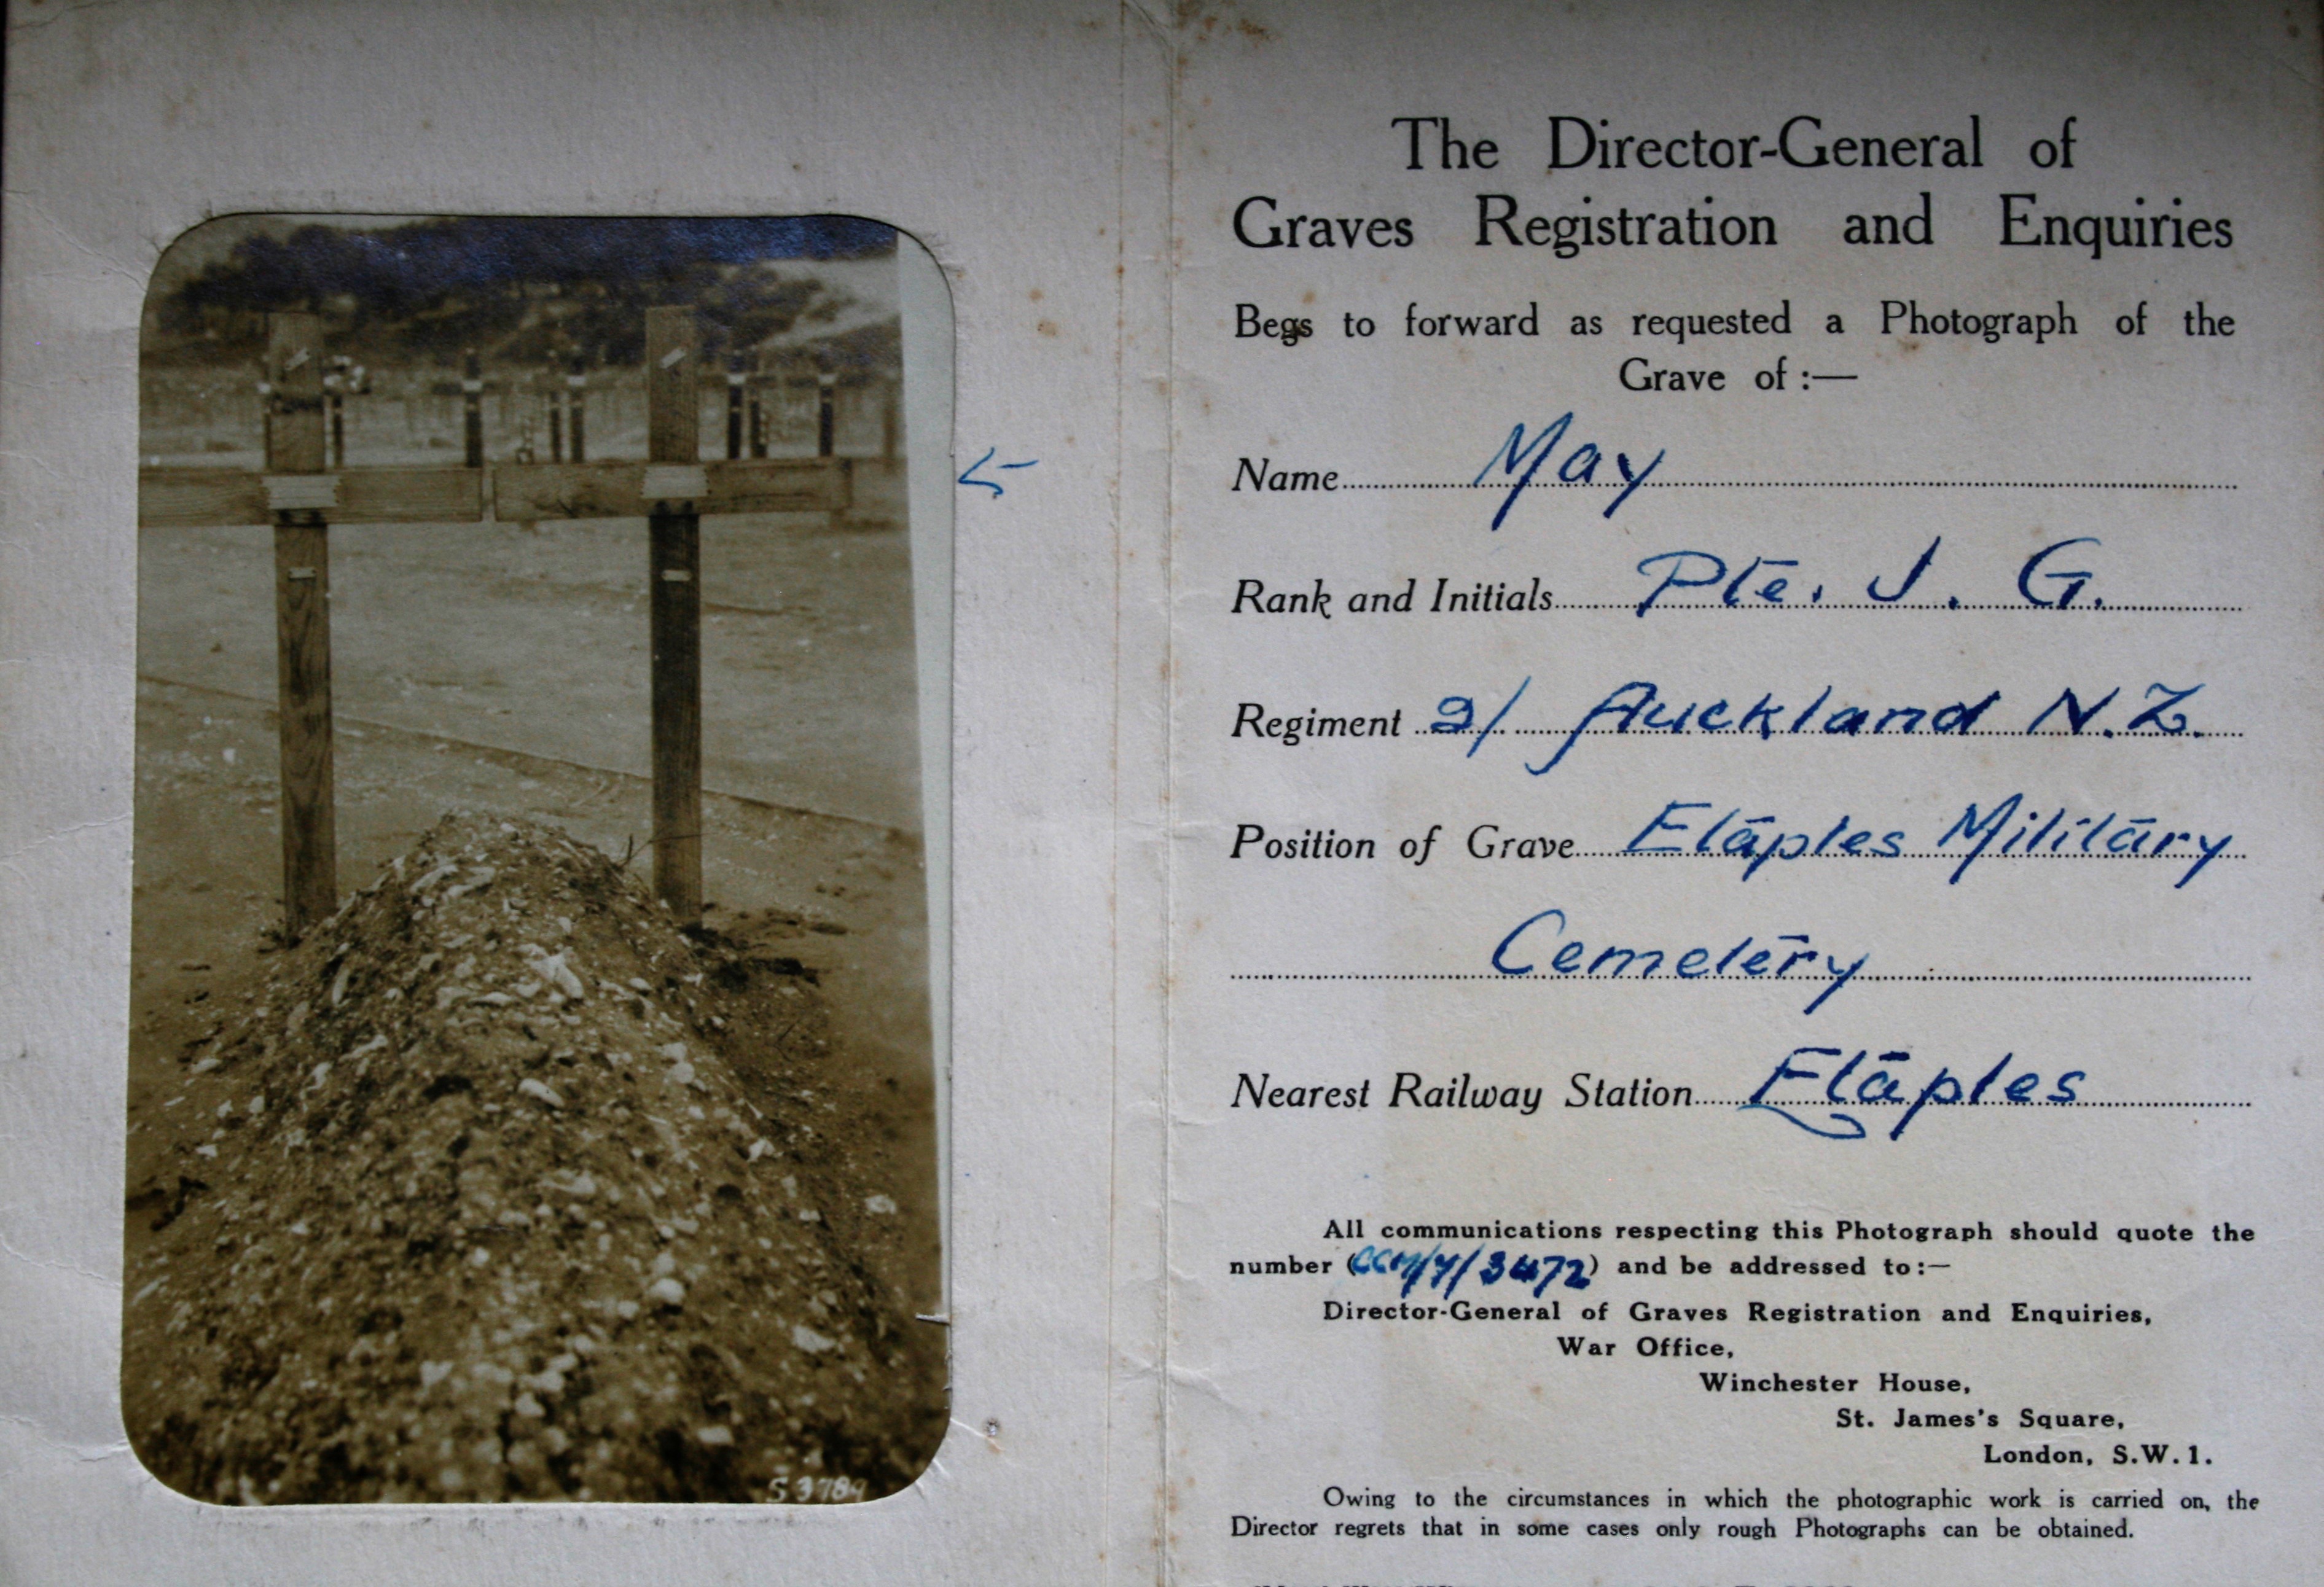 S 3789
The Director-General of
Graves Registration and Enquiries
Begs to forward as requested a Photograph of the
Grave of :—
Name May
Rank and Initials Pte. J. G.
Regiment 2/ Auckland N.Z.
Position of Grave Etaples Military
Cemetery
Nearest Railway Station Etaples
All communications respecting this Photograph should quote the
number (CCM/7/3472) and be addressed to :—
Director-General of Graves Registration and Enquiries,
War Office,
Winchester House,
St. James's Square,
London, S.W.1.
Owing to the circumstances in which the photographic work is carried on, the
Director regrets that in some cases only rough Photographs can be obtained.